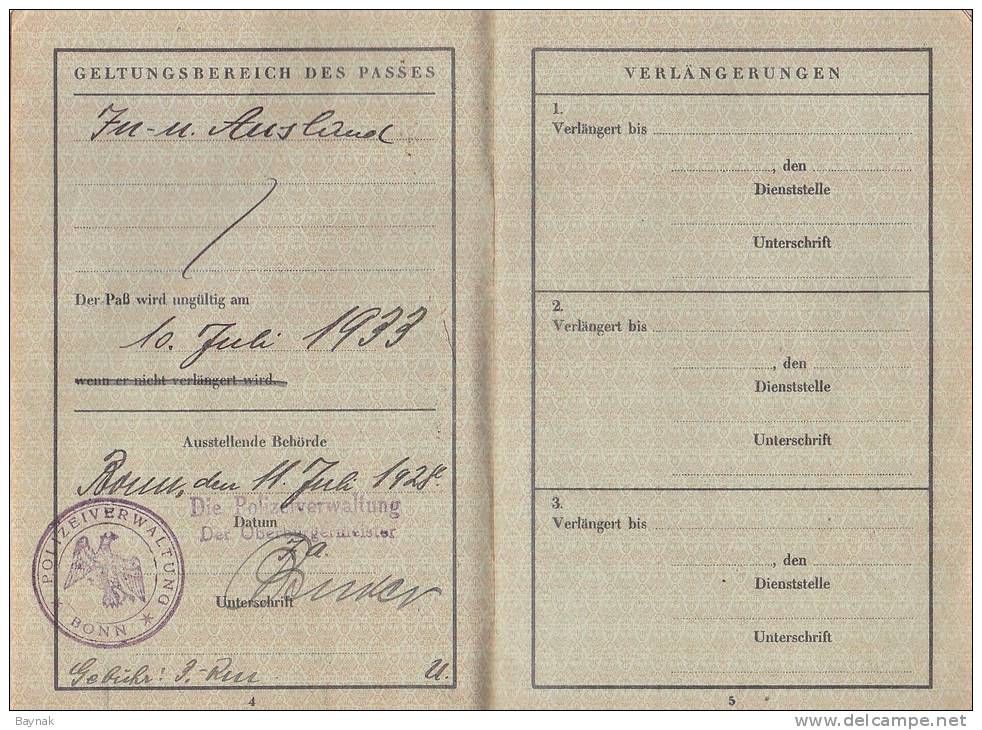 GELTUNGSBEREICH DES PASSES
In- u. Ausland
Der Paß wird ungültig am
10. Juli 1933
wenn er nicht verlängert wird.
Ausstellende Behörde
Bonn, den 11. Juli 1928.
Die Polizeiverwaltung
Datum
Der Oberbürgermeister
Unterschrift
POLIZEIVERWALTUNG
BONN
Gebühr: 3.-Rm
U.
4
VERLÄNGERUNGEN
1.
Verlängert bis
, den
Dienststelle
Unterschrift
2.
Verlängert bis
, den
Dienststelle
Unterschrift
3.
Verlängert bis
, den
Dienststelle
Unterschrift
5
Baynak
www.delcampe.net